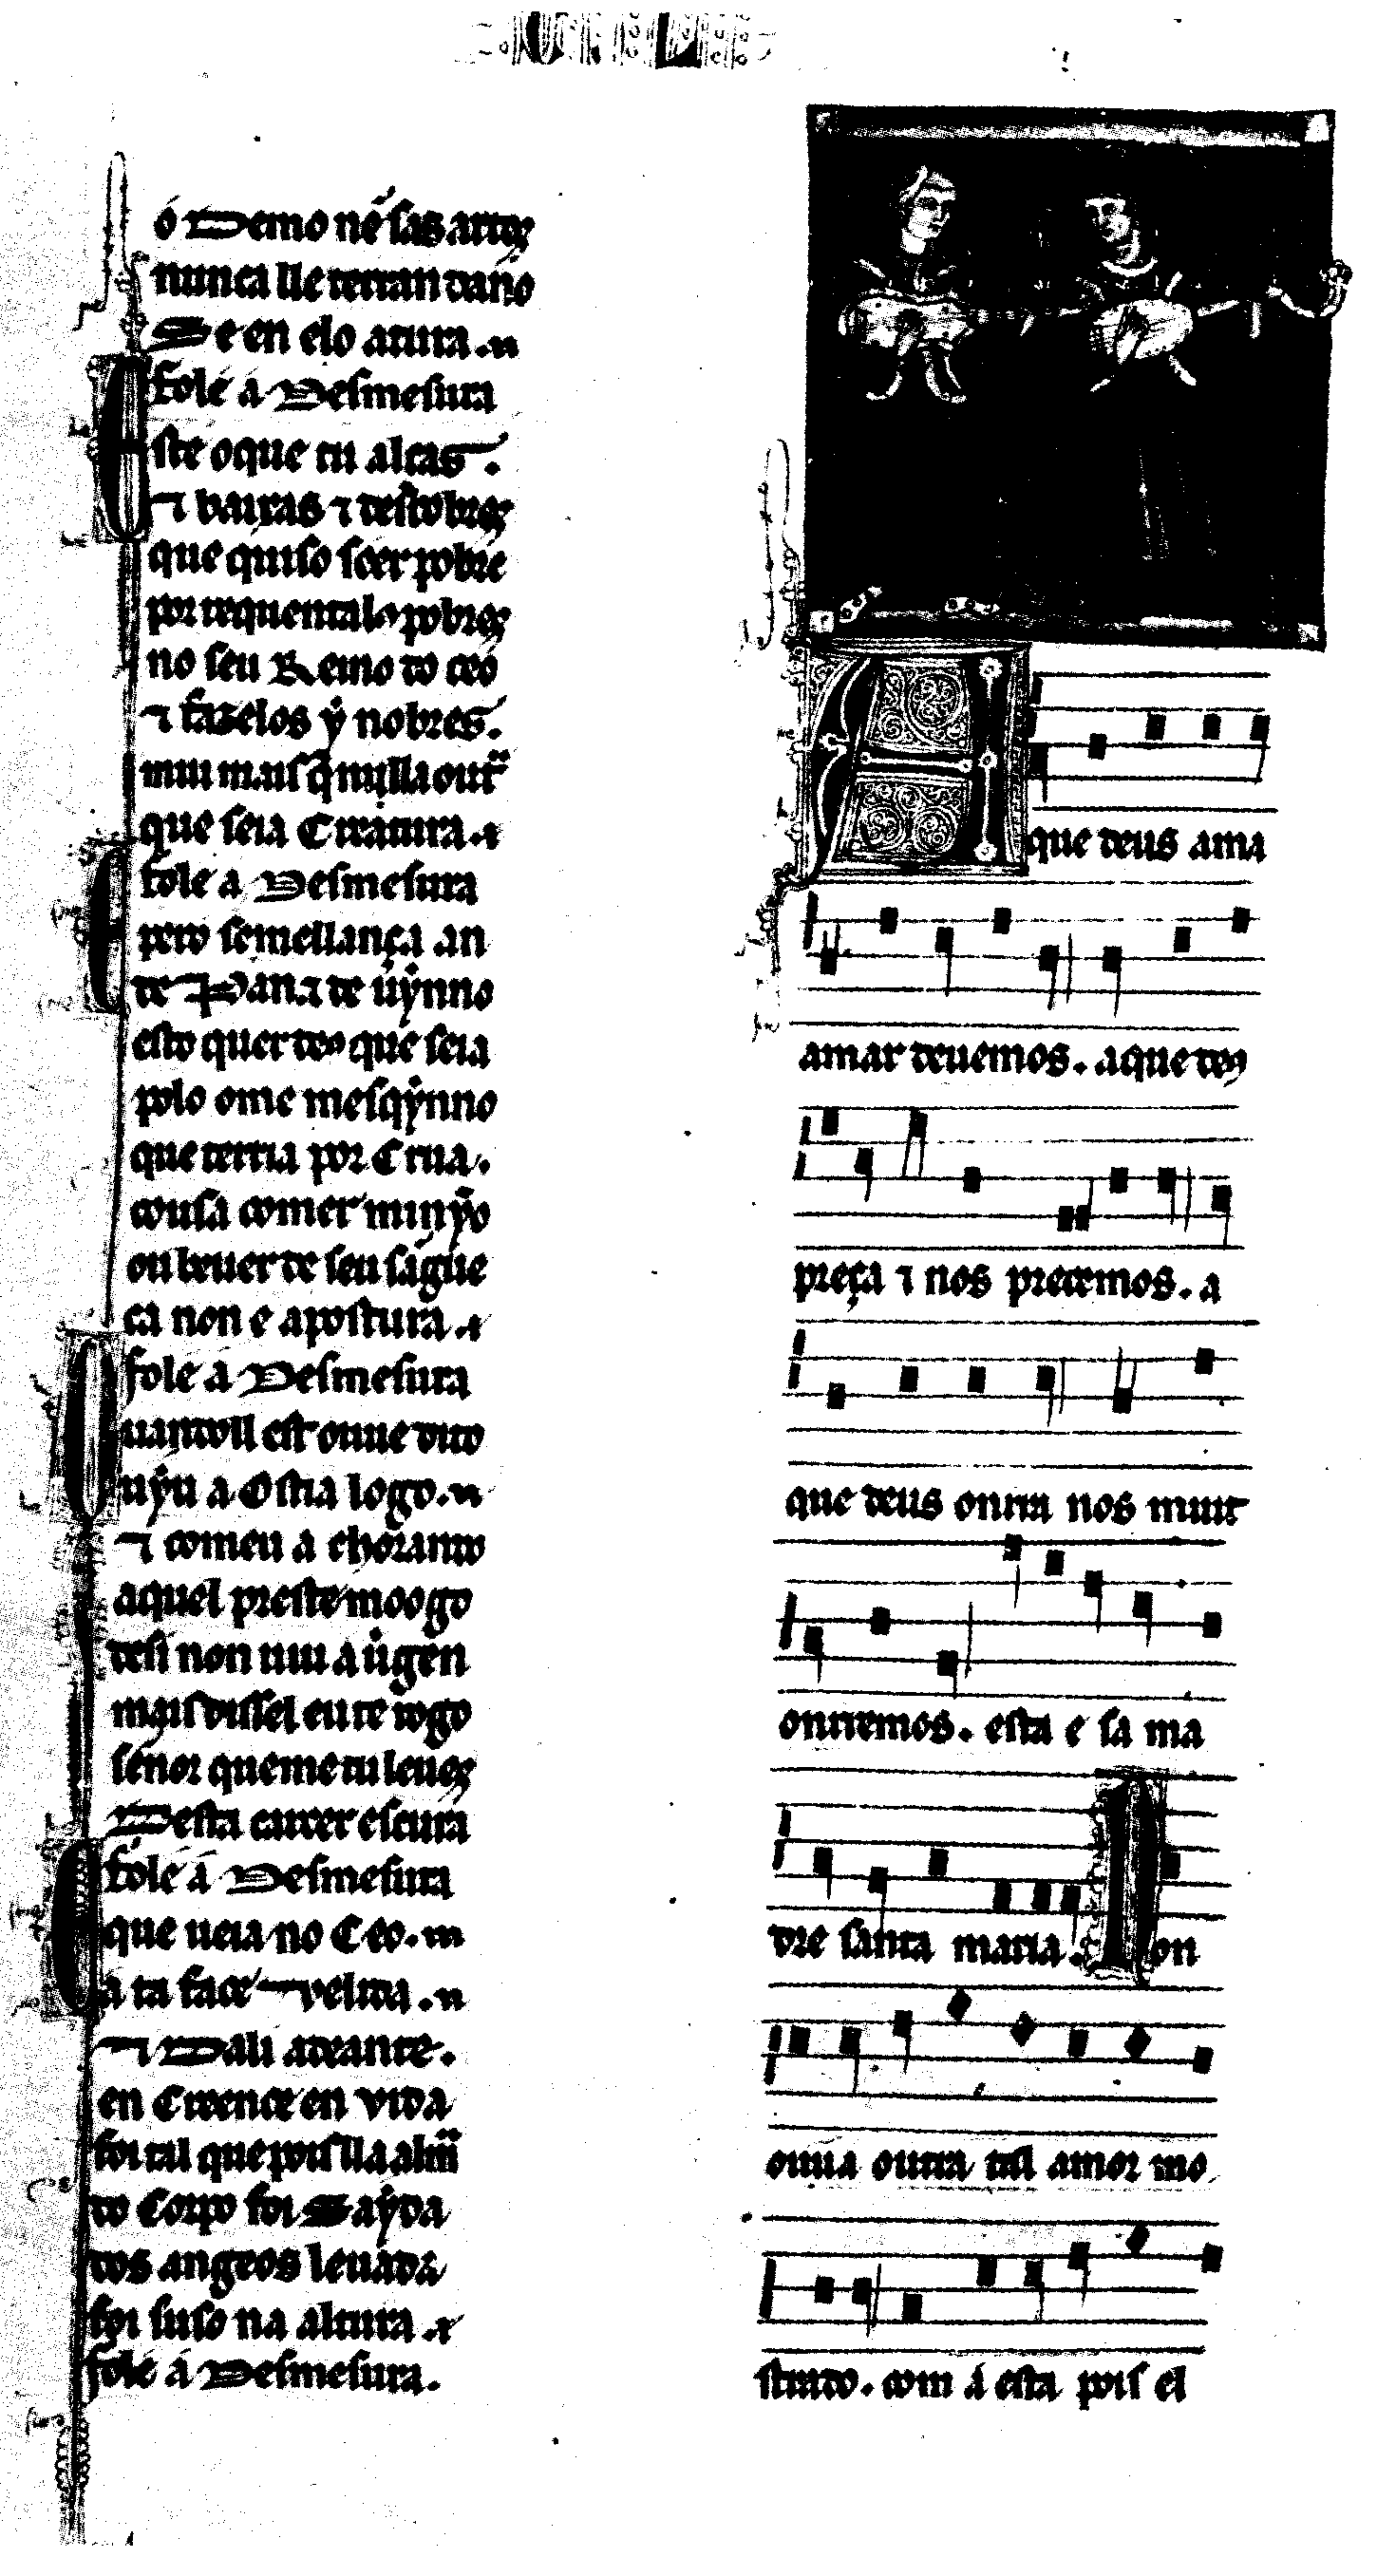 ó Demo nẽ sas artes
nunca lle terran dano
Se en elo atura. ⁊
fole a Desmesura
Este o que tu alças.
⁊ baixas ⁊ descobres
que quiso seer pobre
por requental os pobres
no seu Reino do ceo
⁊ fazelos ý nobres.
mui mais q̃ nulla out̃
que seia Creatura. ⁊
fole a Desmesura
E pero semellança an
de Pan. ⁊ de uỹnno
esto quer deus que seia
polo ome mesqỹnno
que terria por Crua.
cousa comer minỹo
ou beuer de seu sãgue
ca non e apostura. ⁊
fole a Desmesura
Quandoll est ouue dito
uỹu a Ostia logo. ⁊
⁊ comeu a chorando
aquel preste moogo
desi non uiu a uirgen
mais dissel eu te rogo
sennor que me tu leues
Desta carcer escura
fole á Desmesura
E que ueia no Ceo. ⁊
a ta face velida. ⁊
⁊ Dali adeante.
en Creence en vida
foi tal que pois lla alma
do Corpo foi Saỹda
dos angeos leuada
foi suso na altura. ⁊
fole á Desmesura.
A que deus ama
amar deuemos. a que deus
preça ⁊ nos precemos. a
que deus onrra nos muit
onrremos. esta e sa ma
dre santa maria. Non
ouua outra tal amor mo
strado. com á esta pois el